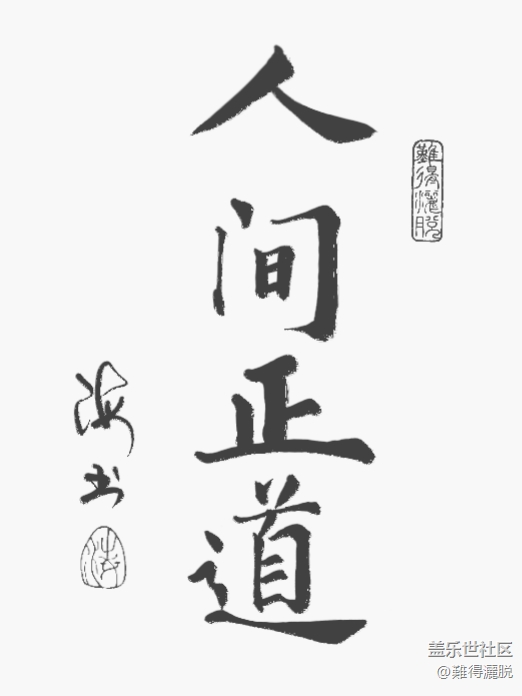 難得灑脱
人间正道
海书
盖乐世社区
@難得灑脱